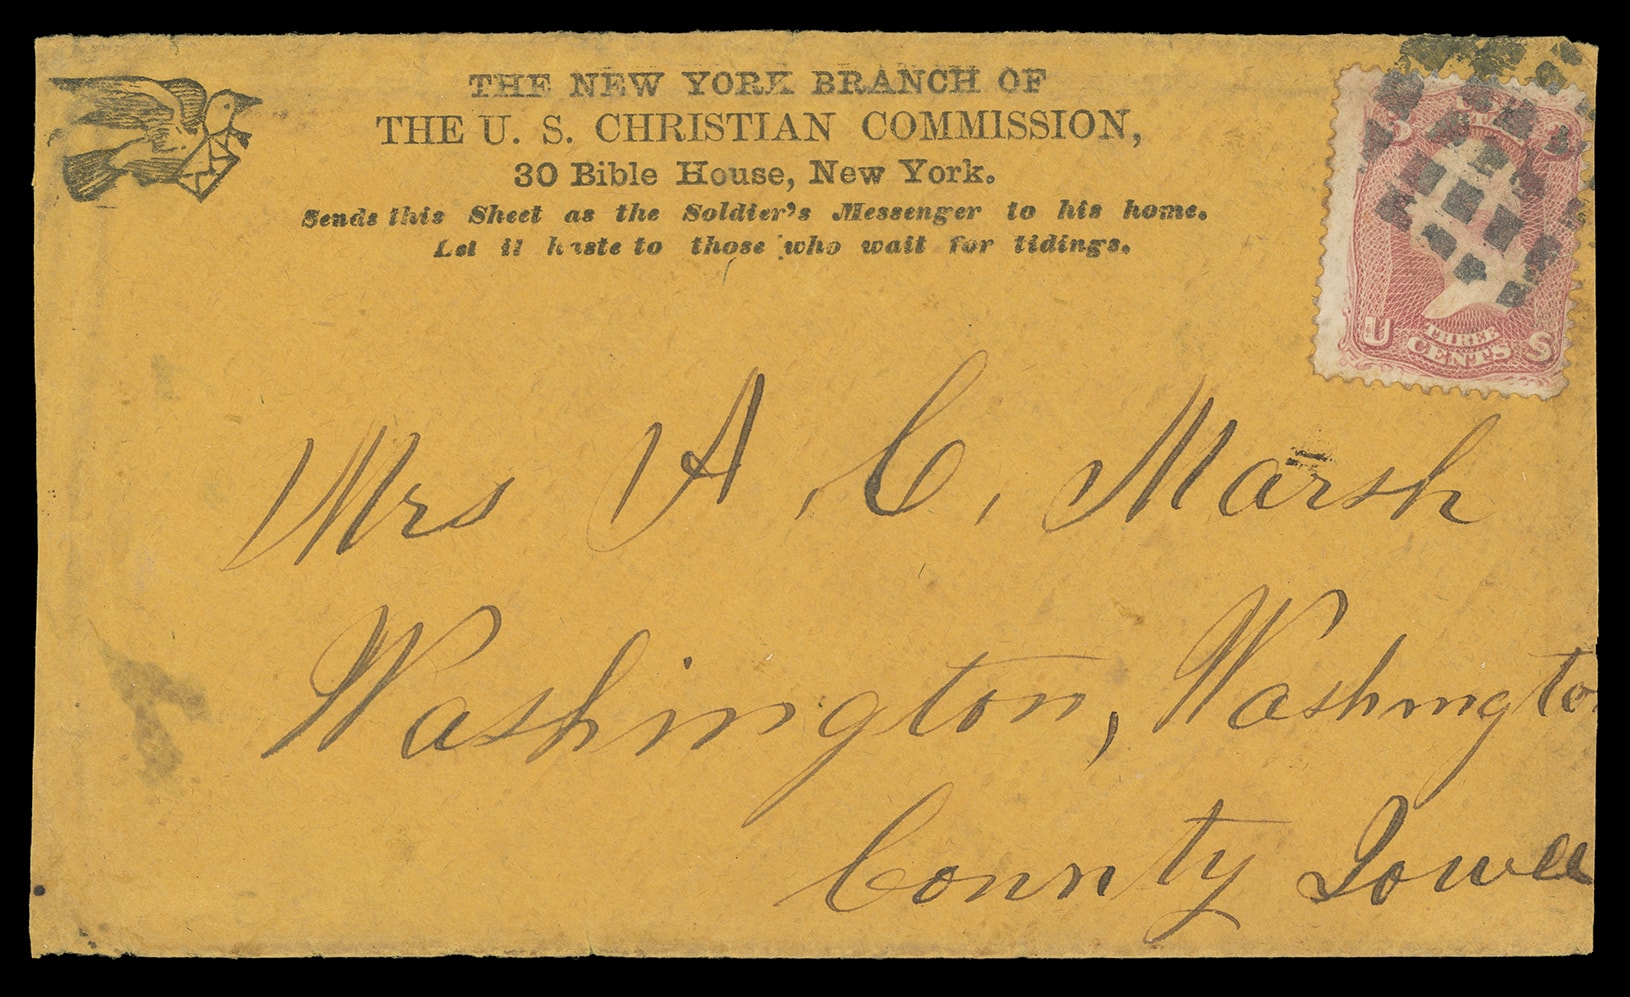 THE NEW YORK BRANCH OF
THE U. S. CHRISTIAN COMMISSION,
30 Bible House, New York.
Sends this Sheet as the Soldier's Messenger to his home.
Let it haste to those who wait for tidings.
3 3
U THREE S
CENTS
Mrs A. C. Marsh
Washington, Washington
County Iowa